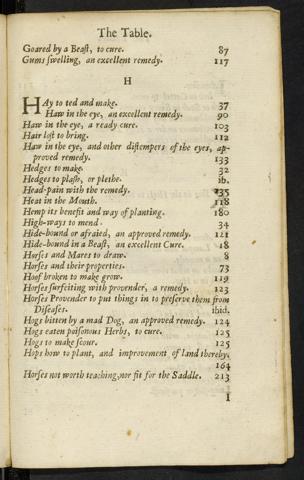 The Table.
Goared by a Beaſt, to cure. 87
Gums ſwelling, an excellent remedy. 117
H
HAy to ted and make. 37
Haw in the eye, an excellent remedy. 90
Haw in the eye, a ready cure. 103
Hair loſt to bring. 112
Haw in the eye, and other diſtempers of the eyes, ap-
proved remedy. 133
Hedges to make. 32
Hedges to plaſh, or plethe. ib.
Head-pain with the remedy. 235
Heat in the Mouth. 118
Hemp its benefit and way of planting. 180
High-ways to mend. 34
Hide-bound or afraied, an approved remedy. 121
Hide-bound in a Beaſt, an excellent Cure. 18
Horſes and Mares to draw. 8
Horſes and their properties. 73
Hoof broken to make grow. 119
Horſes ſurfeiting with provender, a remedy. 123
Horſes Provender to put things in to preſerve them from
Diſeaſes. ibid.
Hogs bitten by a mad Dog, an approved remedy. 124
Hogs eaten poiſonous Herbs, to cure. 125
Hogs to make ſcour. 125
Hops how to plant, and improvement of land thereby.
164
Horſes not worth teaching, nor fit for the Saddle. 213
I